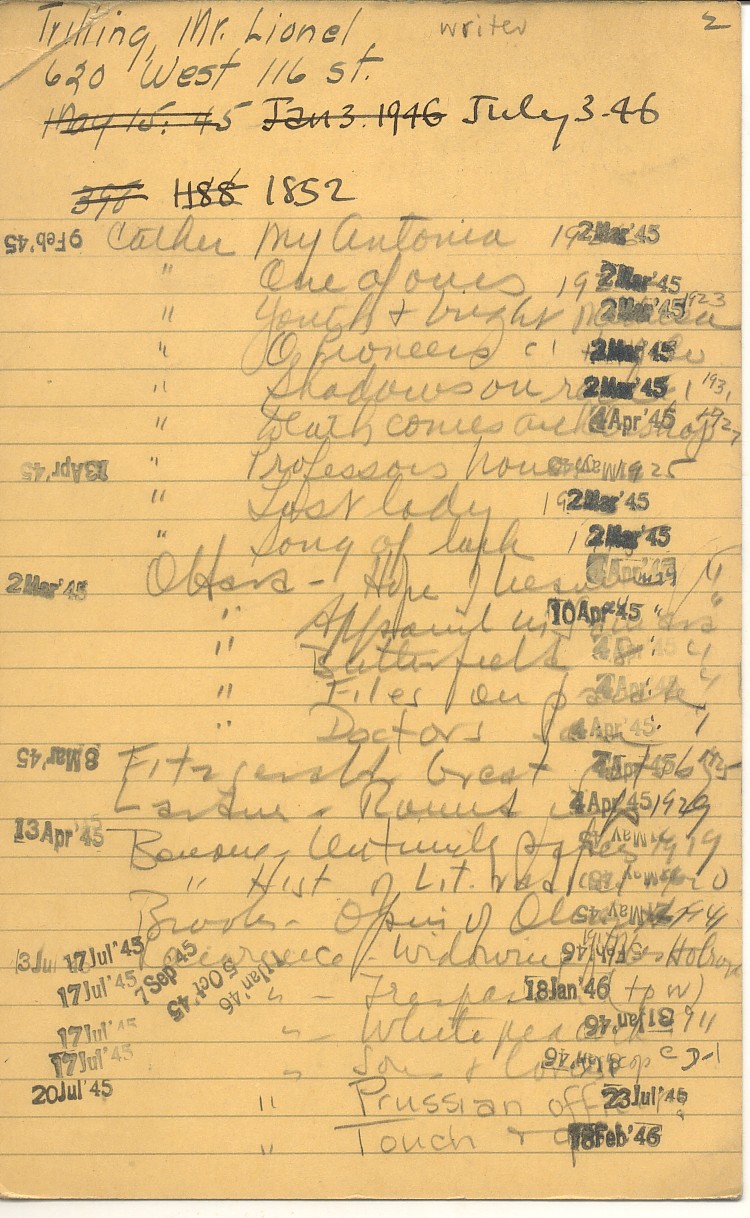 Trilling, Mr. Lionel writer 2
620 West 116 st.
May 15. 45 Jan 3. 1946 July 3-46
H88 1852
9 Feb '45 Cather My Antonia 2 Mar '45
" One of ours 19 2 Mar '45
" Youth + bright Medusa 2 Mar '45 1923
" O Pioneers 2 Mar '45
" Shadows on rock 2 Mar '45 1931
" Death comes archbishop 4 Apr '45 1927
13 Apr '45 " Professors house 1925
" Lost lady 19 2 Mar '45
" Song of lark 1 2 Mar '45
2 Mar '45 O'Hara - Hope of heaven Apr '45
" Appoint in 10 Apr '45 "
" Butterfield 4 Apr '45 "
" Files on parade 4 Apr '45 "
" Doctors 4 Apr '45
8 Mar '45 Fitzgerald Great 4 Apr '45
Lardner - Round up 4 Apr '45 1929
13 Apr '45 Bourne, Untimely papers May '45 1919
" Hist of Lit. rad May '45
Brooks - Opin of Oliver May '45 1941
13 Ju 17 Jul '45 Lawrence - Widowing of Mrs Holroyd 5 Feb '46
17 Jul '45 7 Sep '45 5 Oct '45 Jan '46 " - Trespasser 18 Jan '46 (+ p w)
17 Jul '45 " White peacock 31 Jan '46 1911
17 Jul '45 " Sons + lovers cop c D-1
20 Jul '45 " Prussian officer 23 Jul '45
" Touch + go 18 Feb '46